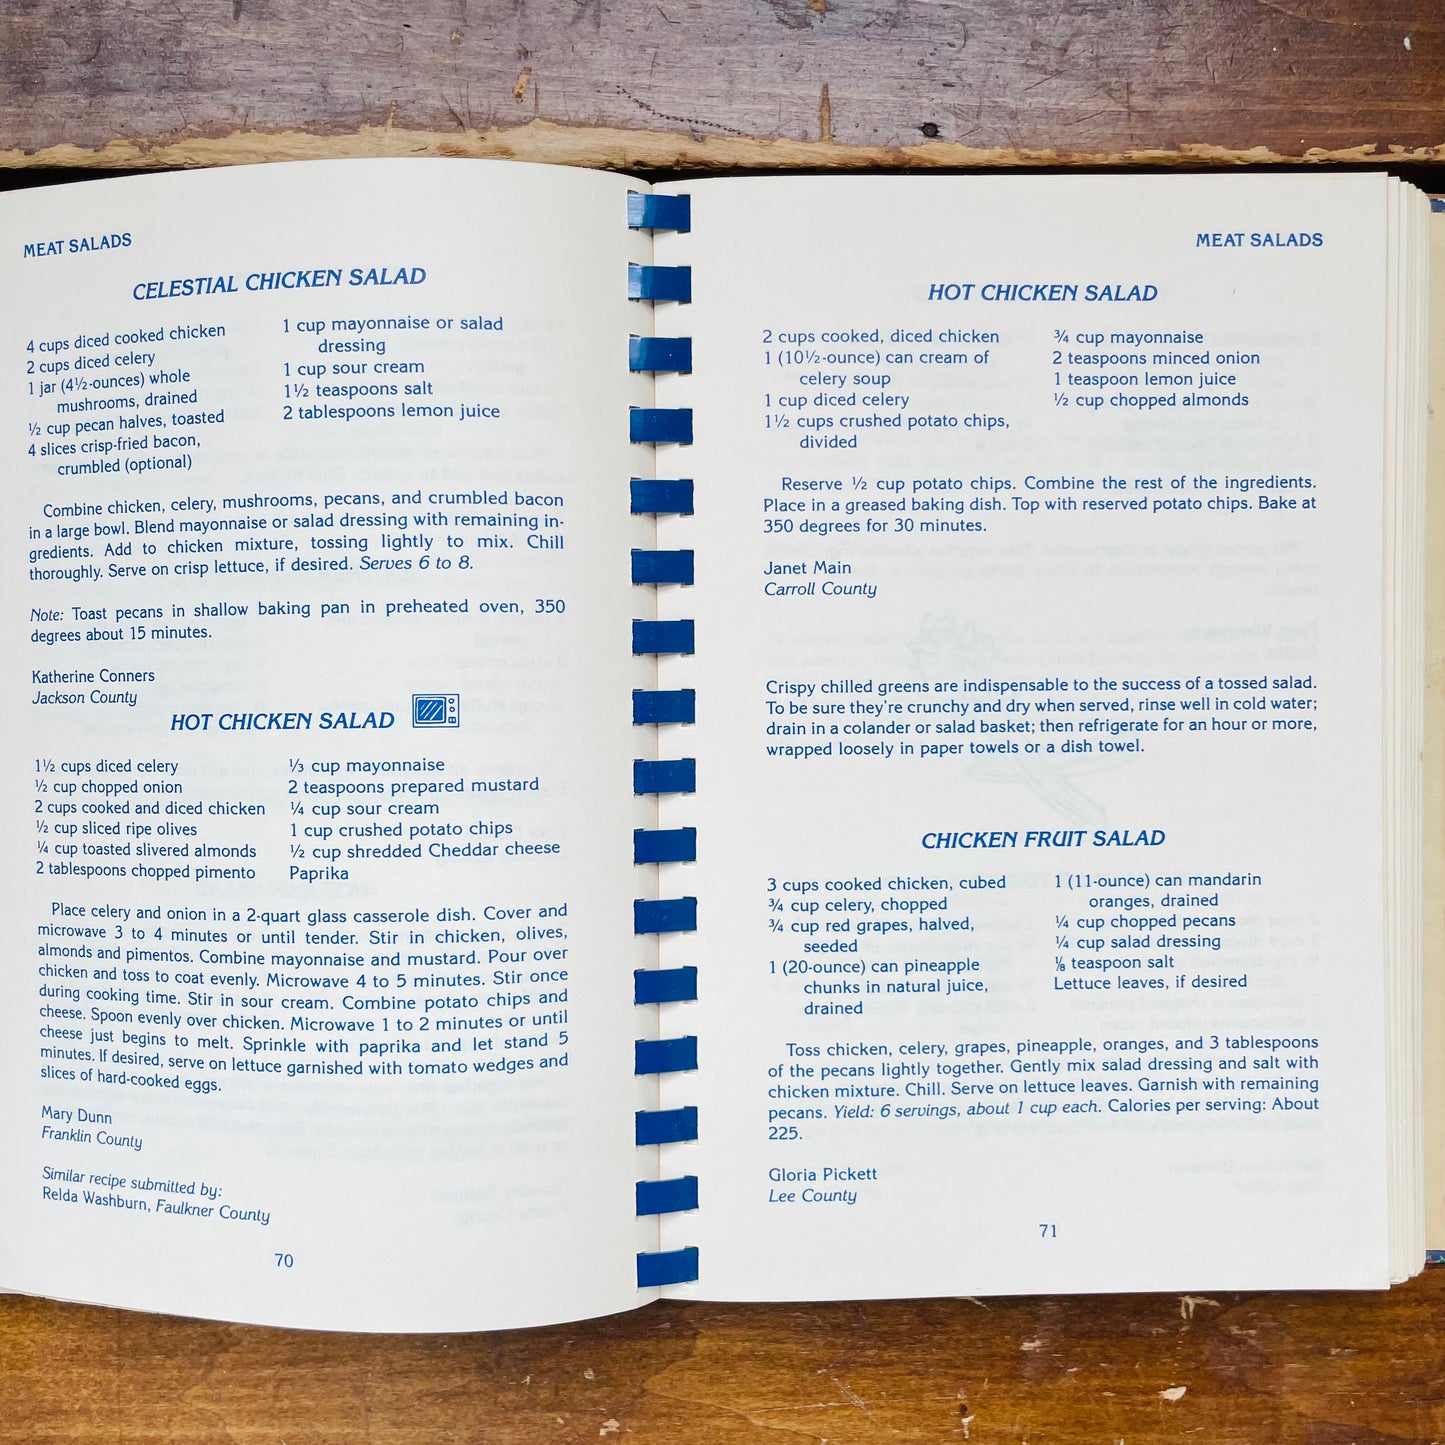 MEAT SALADS
CELESTIAL CHICKEN SALAD
4 cups diced cooked chicken
2 cups diced celery
1 jar (4½-ounces) whole
mushrooms, drained
½ cup pecan halves, toasted
4 slices crisp-fried bacon,
crumbled (optional)
1 cup mayonnaise or salad
dressing
1 cup sour cream
1½ teaspoons salt
2 tablespoons lemon juice
Combine chicken, celery, mushrooms, pecans, and crumbled bacon
in a large bowl. Blend mayonnaise or salad dressing with remaining in-
gredients. Add to chicken mixture, tossing lightly to mix. Chill
thoroughly. Serve on crisp lettuce, if desired. Serves 6 to 8.
Note: Toast pecans in shallow baking pan in preheated oven, 350
degrees about 15 minutes.
Katherine Conners
Jackson County
HOT CHICKEN SALAD
1½ cups diced celery
½ cup chopped onion
2 cups cooked and diced chicken
½ cup sliced ripe olives
¼ cup toasted slivered almonds
2 tablespoons chopped pimento
⅓ cup mayonnaise
2 teaspoons prepared mustard
¼ cup sour cream
1 cup crushed potato chips
½ cup shredded Cheddar cheese
Paprika
Place celery and onion in a 2-quart glass casserole dish. Cover and
microwave 3 to 4 minutes or until tender. Stir in chicken, olives,
almonds and pimentos. Combine mayonnaise and mustard. Pour over
chicken and toss to coat evenly. Microwave 4 to 5 minutes. Stir once
during cooking time. Stir in sour cream. Combine potato chips and
cheese. Spoon evenly over chicken. Microwave 1 to 2 minutes or until
cheese just begins to melt. Sprinkle with paprika and let stand 5
minutes. If desired, serve on lettuce garnished with tomato wedges and
slices of hard-cooked eggs.
Mary Dunn
Franklin County
Similar recipe submitted by:
Relda Washburn, Faulkner County
70
MEAT SALADS
HOT CHICKEN SALAD
2 cups cooked, diced chicken
1 (10½-ounce) can cream of
celery soup
1 cup diced celery
1½ cups crushed potato chips,
divided
¾ cup mayonnaise
2 teaspoons minced onion
1 teaspoon lemon juice
½ cup chopped almonds
Reserve ½ cup potato chips. Combine the rest of the ingredients.
Place in a greased baking dish. Top with reserved potato chips. Bake at
350 degrees for 30 minutes.
Janet Main
Carroll County
Crispy chilled greens are indispensable to the success of a tossed salad.
To be sure they're crunchy and dry when served, rinse well in cold water;
drain in a colander or salad basket; then refrigerate for an hour or more,
wrapped loosely in paper towels or a dish towel.
CHICKEN FRUIT SALAD
3 cups cooked chicken, cubed
¾ cup celery, chopped
¾ cup red grapes, halved,
seeded
1 (20-ounce) can pineapple
chunks in natural juice,
drained
1 (11-ounce) can mandarin
oranges, drained
¼ cup chopped pecans
¼ cup salad dressing
⅛ teaspoon salt
Lettuce leaves, if desired
Toss chicken, celery, grapes, pineapple, oranges, and 3 tablespoons
of the pecans lightly together. Gently mix salad dressing and salt with
chicken mixture. Chill. Serve on lettuce leaves. Garnish with remaining
pecans. Yield: 6 servings, about 1 cup each. Calories per serving: About
225.
Gloria Pickett
Lee County
71